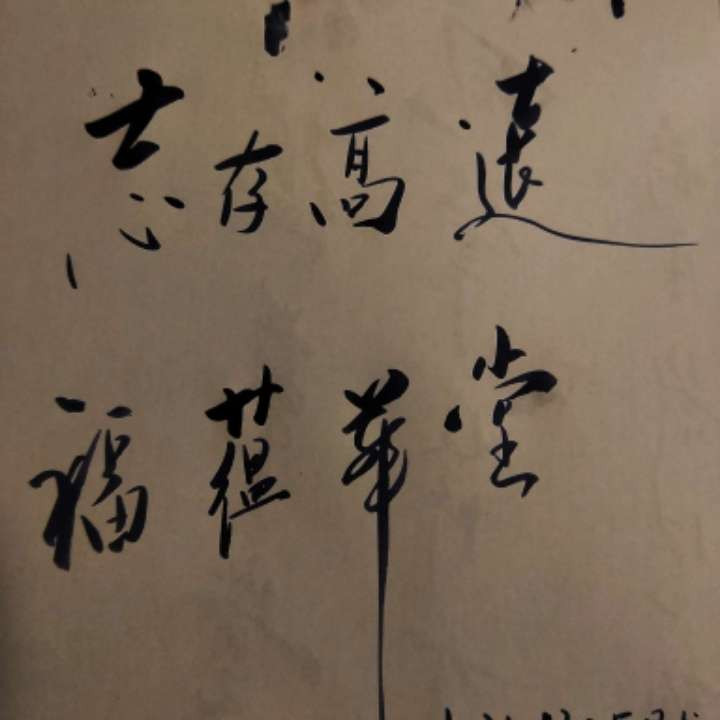 志存高遠
福蕴華堂